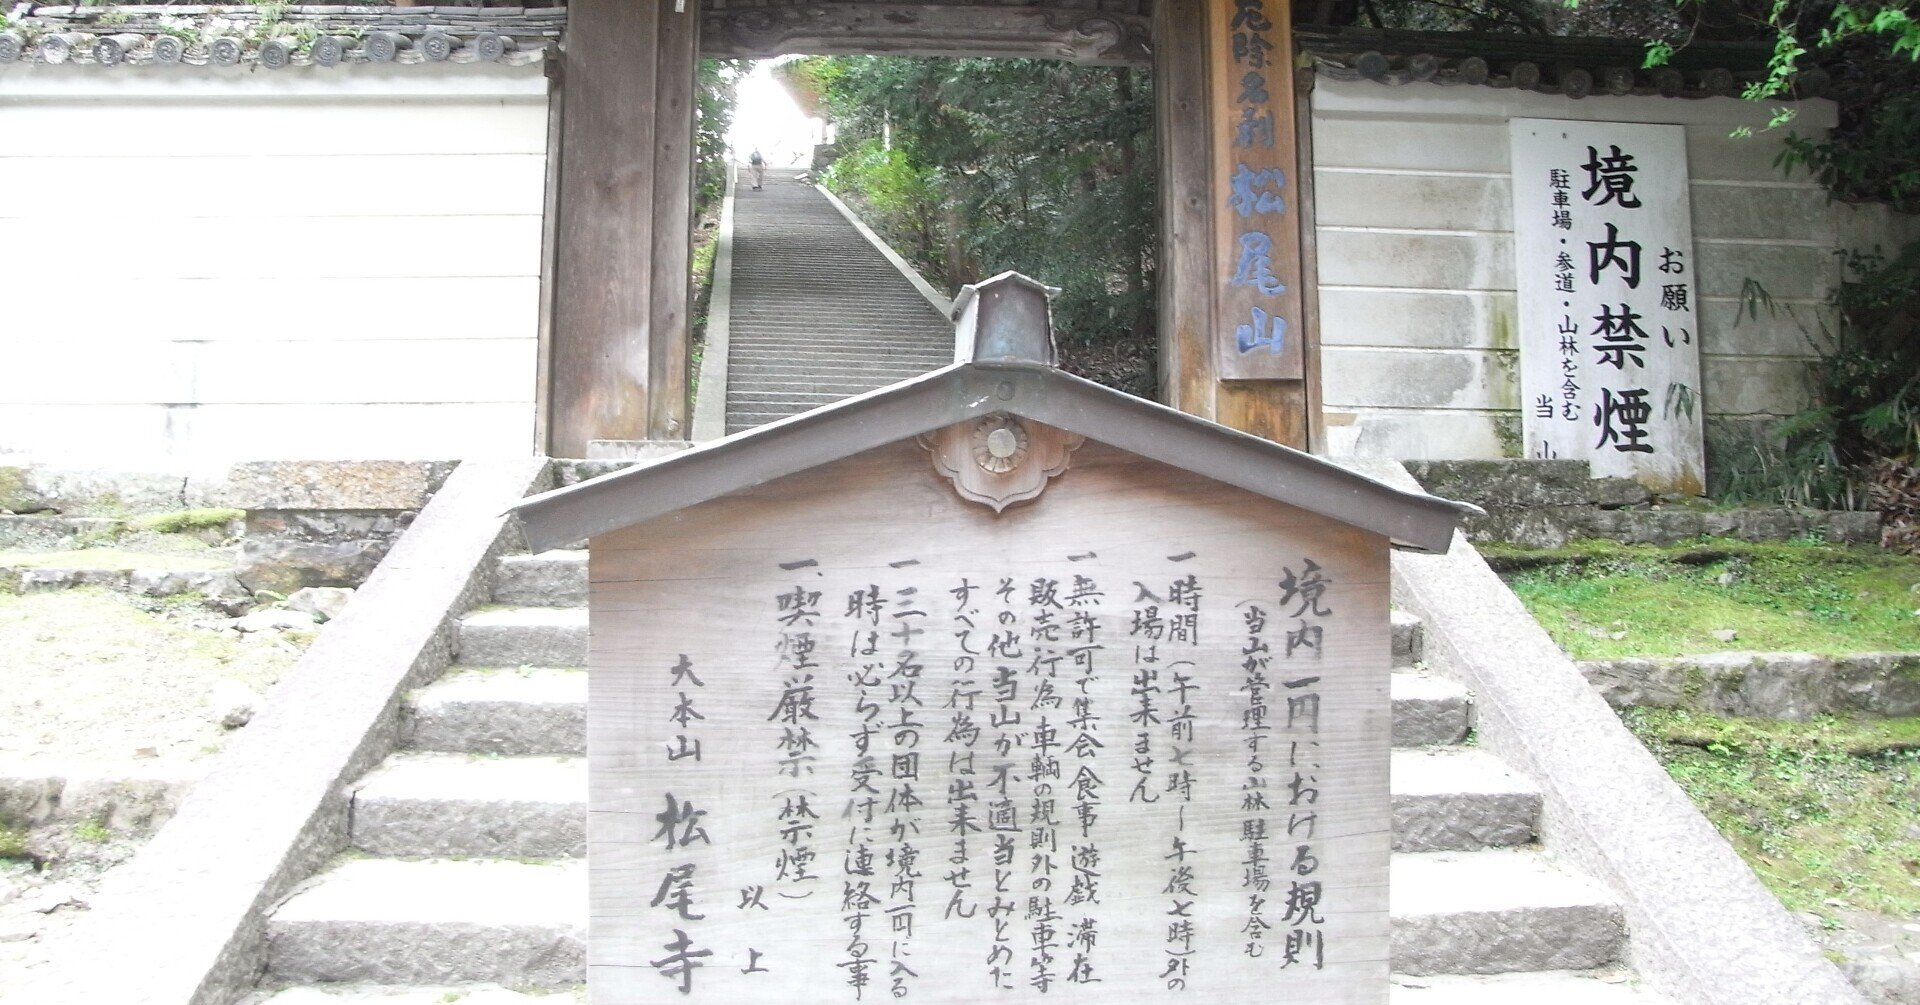 厄除名刹 松尾山
お願い
境内禁煙
駐車場・参道・山林を含む
当山
境内一円における規則
(当山が管理する山林 駐車場を含む
一 時間(午前七時〜午後七時)外の
入場は出来ません
一 無許可で集会 食事 遊戯 滞在
販売行為 車輌の規則外の駐車等
その他当山が不適当とみとめた
すべての行為は出来ません
一 三十名以上の団体が境内一円に入る
時は必らず受付に連絡する事
一、喫煙厳禁(禁煙)
以上
大本山 松尾寺